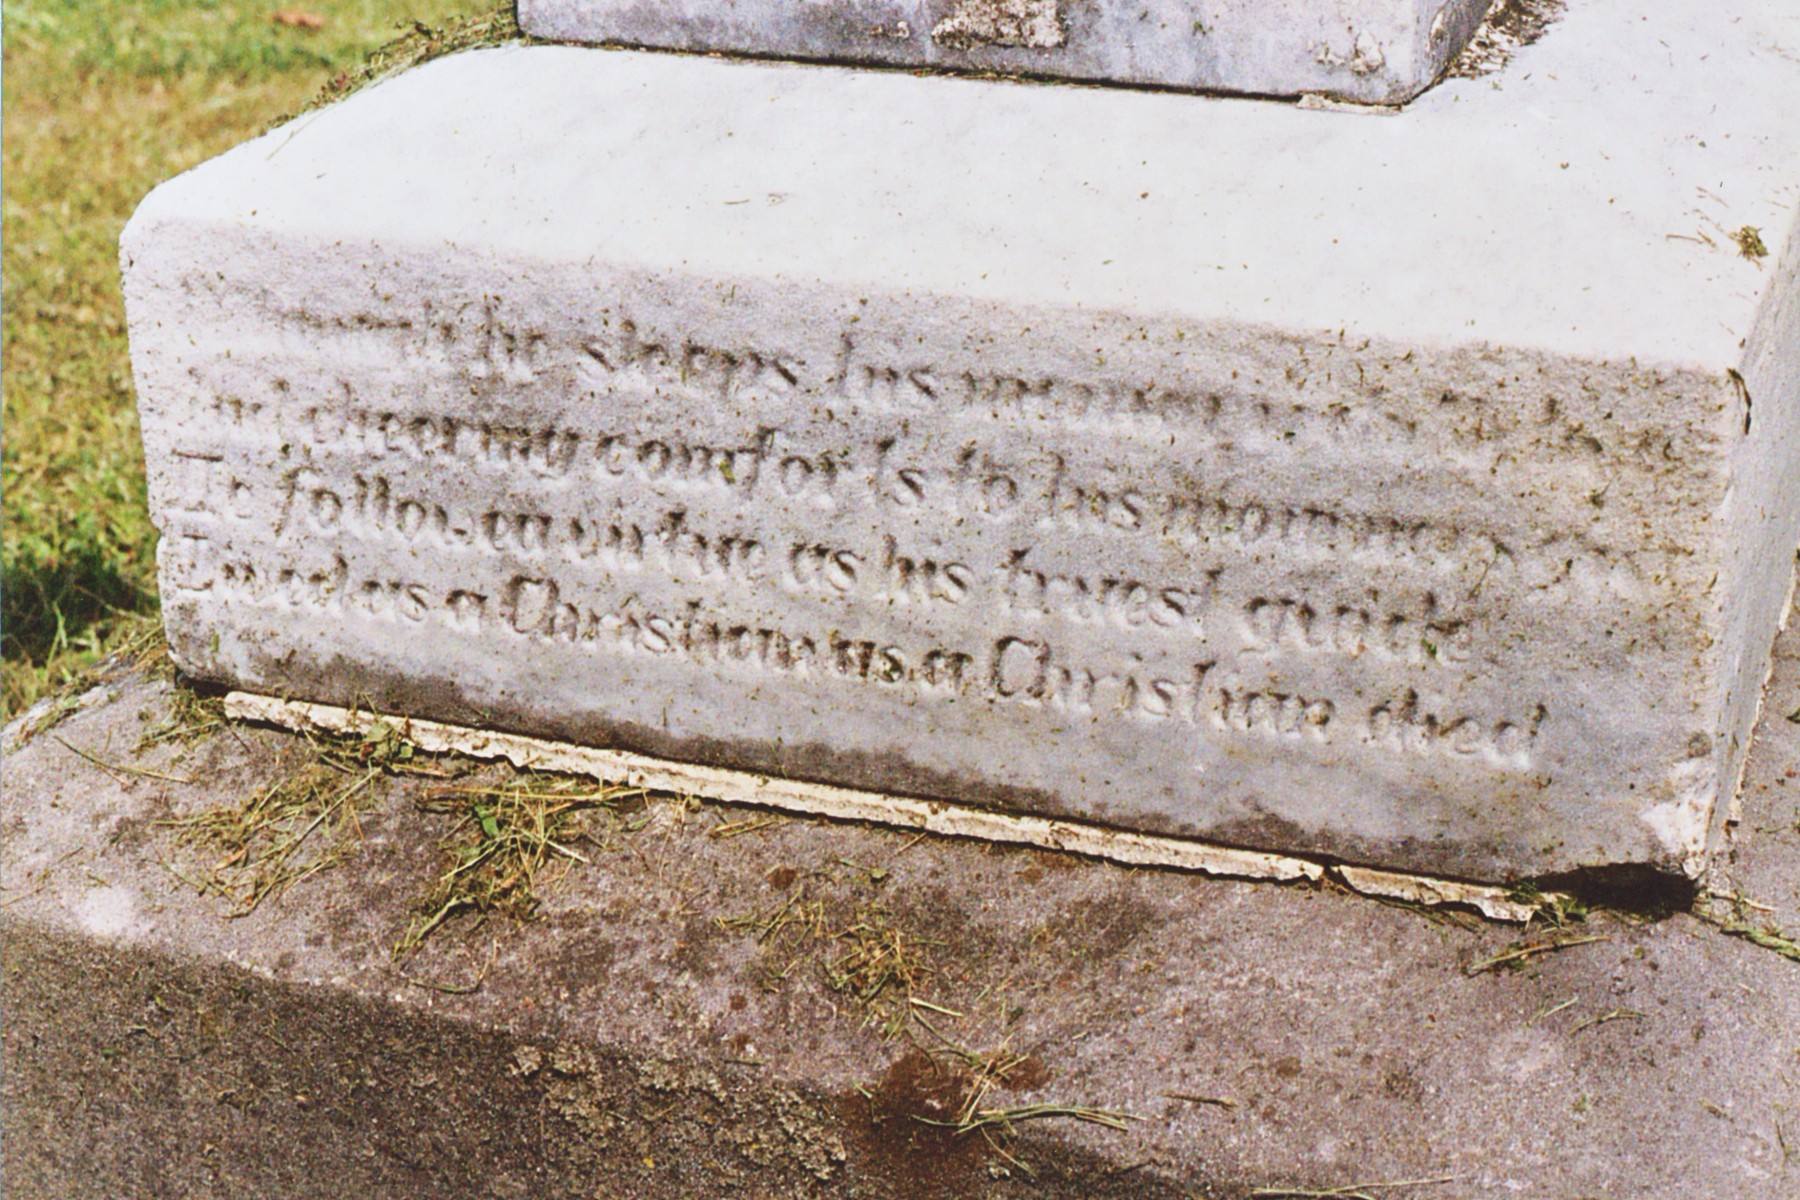 Though he sleeps his memory
And cheering comforts to his mourners
He followed virtue as his truest guide
Lived as a Christian as a Christian died